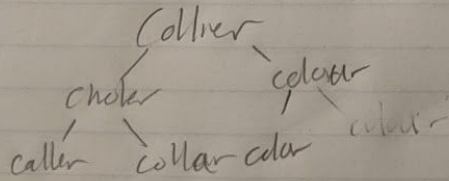 Collier
choler colour
caller collar color